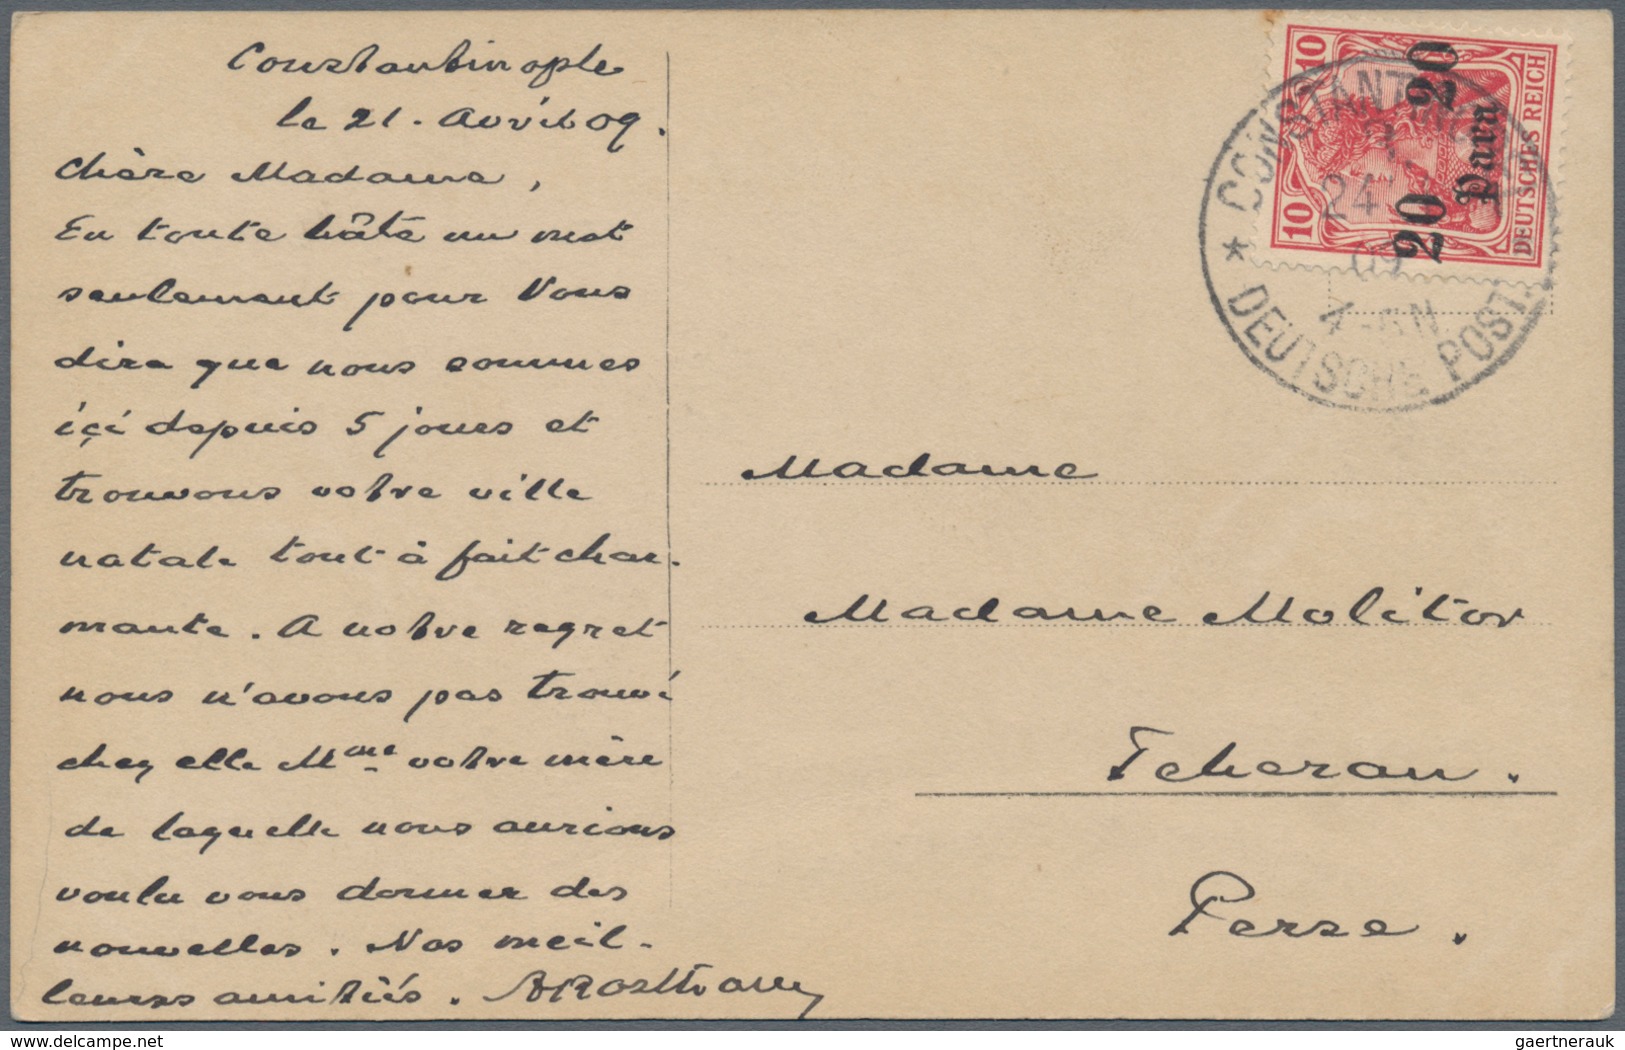 Constantinople
le 21. Avril 09.
Chère Madame,
En toute hâte un mot
seulement pour Vous
dire que nous sommes
içi depuis 5 jours et
trouvons votre ville
natale tout à fait char-
mante. A notre regret
nous n'avons pas trouvé
chez elle Mme votre mère
de laquelle nous aurions
voulu vous donner des
nouvelles. Nos meil-
leures amitiés.
10 10
20 20
Para
DEUTSCHES REICH
CONSTANTINOPEL
24
09
4-5N
* DEUTSCHE POST.
Madame
Madame Molitor
Teheran.
Perse.
delcampe.net
gaertnerauk